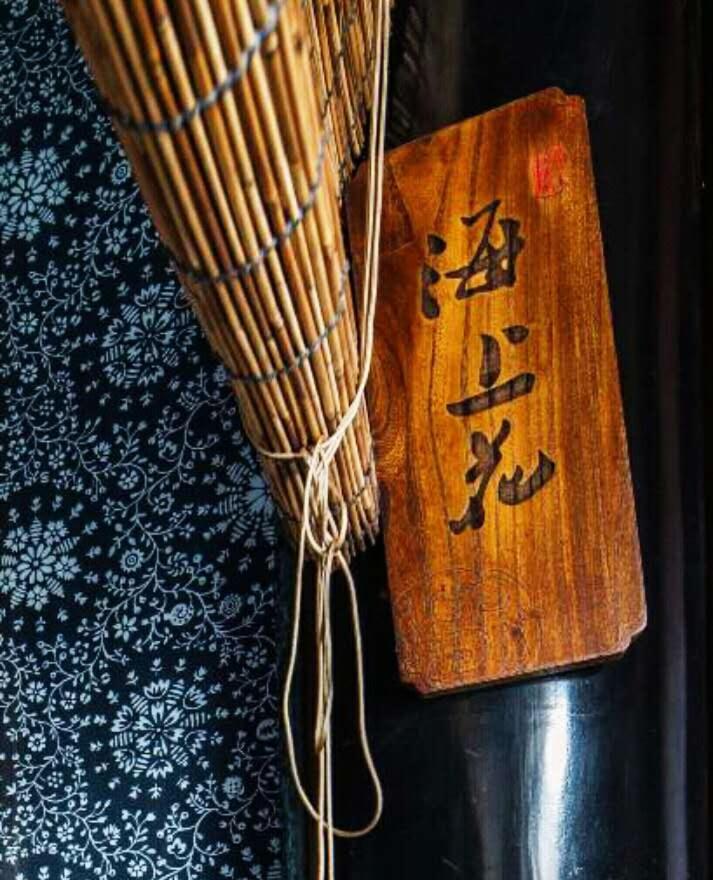 海上花